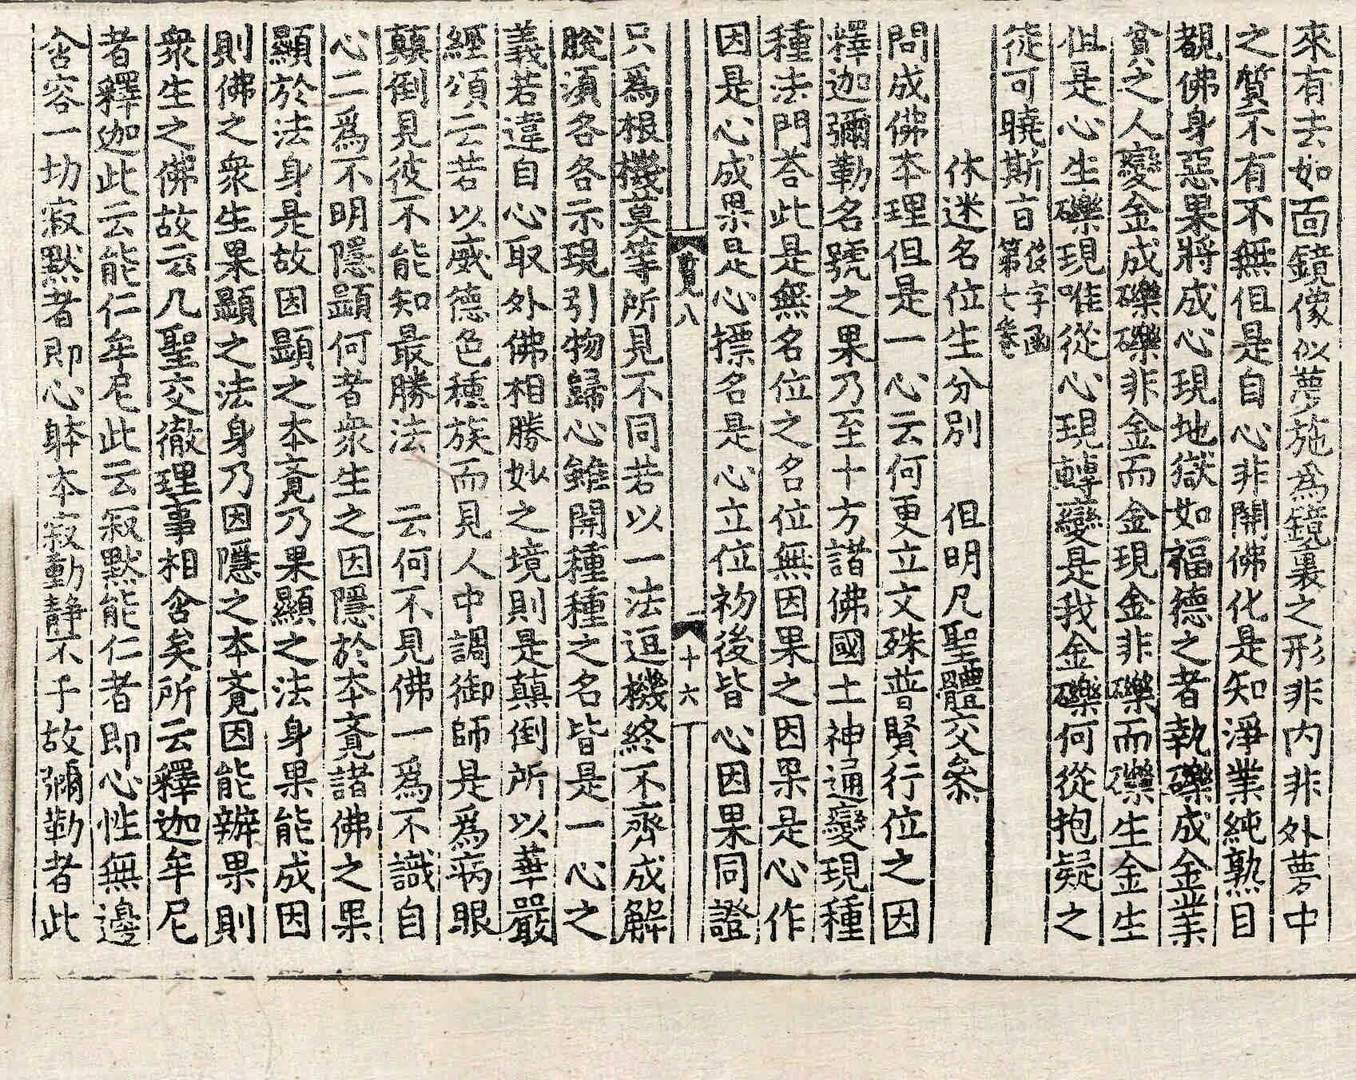 來有去如面鏡像似夢施為鏡裏之形非內非外夢中
之質不有不無但是自心非關佛化是知淨業純熟目
覩佛身惡果將成心現地獄如福德之者執礫成金業
貧之人變金成礫礫非金而金現金非礫而礫生金生
但是心生礫現唯從心現轉變是我金礫何從抱疑之
徒可曉斯旨
俊字函
第七卷
休迷名位生分別　但明凡聖體交叅
問成佛本理但是一心云何更立文殊普賢行位之因
釋迦彌勒名號之果乃至十方諸佛國土神通變現種
種法門荅此是無名位之名位無因果之因果是心作
因是心成果是心摽名是心立位初後皆心因果同證
八
十六
只爲根機莫等所見不同若以一法逗機終不齊成解
脫須各各示現引物歸心雖開種種之名皆是一心之
義若違自心取外佛相勝妙之境則是顚倒所以華嚴
經頌云若以威德色種族而見人中調御師是爲病眼
顚倒見彼不能知最勝法　云何不見佛一爲不識自
心二爲不明隱顯何者衆生之因隱於本覔諸佛之果
顯於法身是故因顯之本覔乃果顯之法身果能成因
則佛之衆生果顯之法身乃因隱之本覔因能辦果則
衆生之佛故云凡聖交徹理事相含矣所云釋迦牟尼
者釋迦此云能仁牟尼此云寂默能仁者即心性無邊
含容一切寂默者即心躰本寂動靜不干故彌勒者此